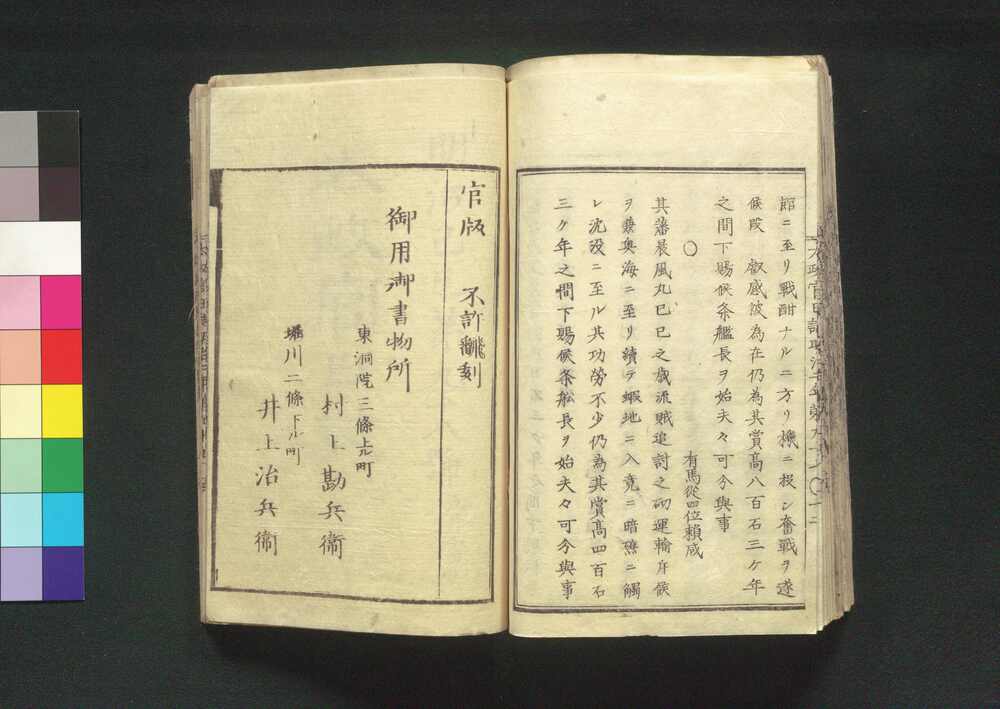 館ニ至リ戰酣ナルニ方リ機ニ投シ奮戰ヲ遂
候段　叡感被為在仍為其賞高八百石三ケ年
之間下賜候条艦長ヲ始夫々可分與事
〇
有馬従四位頼咸
其藩晨風丸己巳之歳流賊追討之砌運輸舟候
ヲ兼奥海ニ至リ續テ蝦地ニ入竟ニ暗礁ニ觸
レ沈没ニ至ル其功勞不少仍為其賞高四百石
三ケ年之間下賜候条舩長ヲ始夫々可分與事
官版　不許飜刻
御用御書物所
東洞院三條上ル町
村上勘兵衞
堀川二條下ル町
井上治兵衞